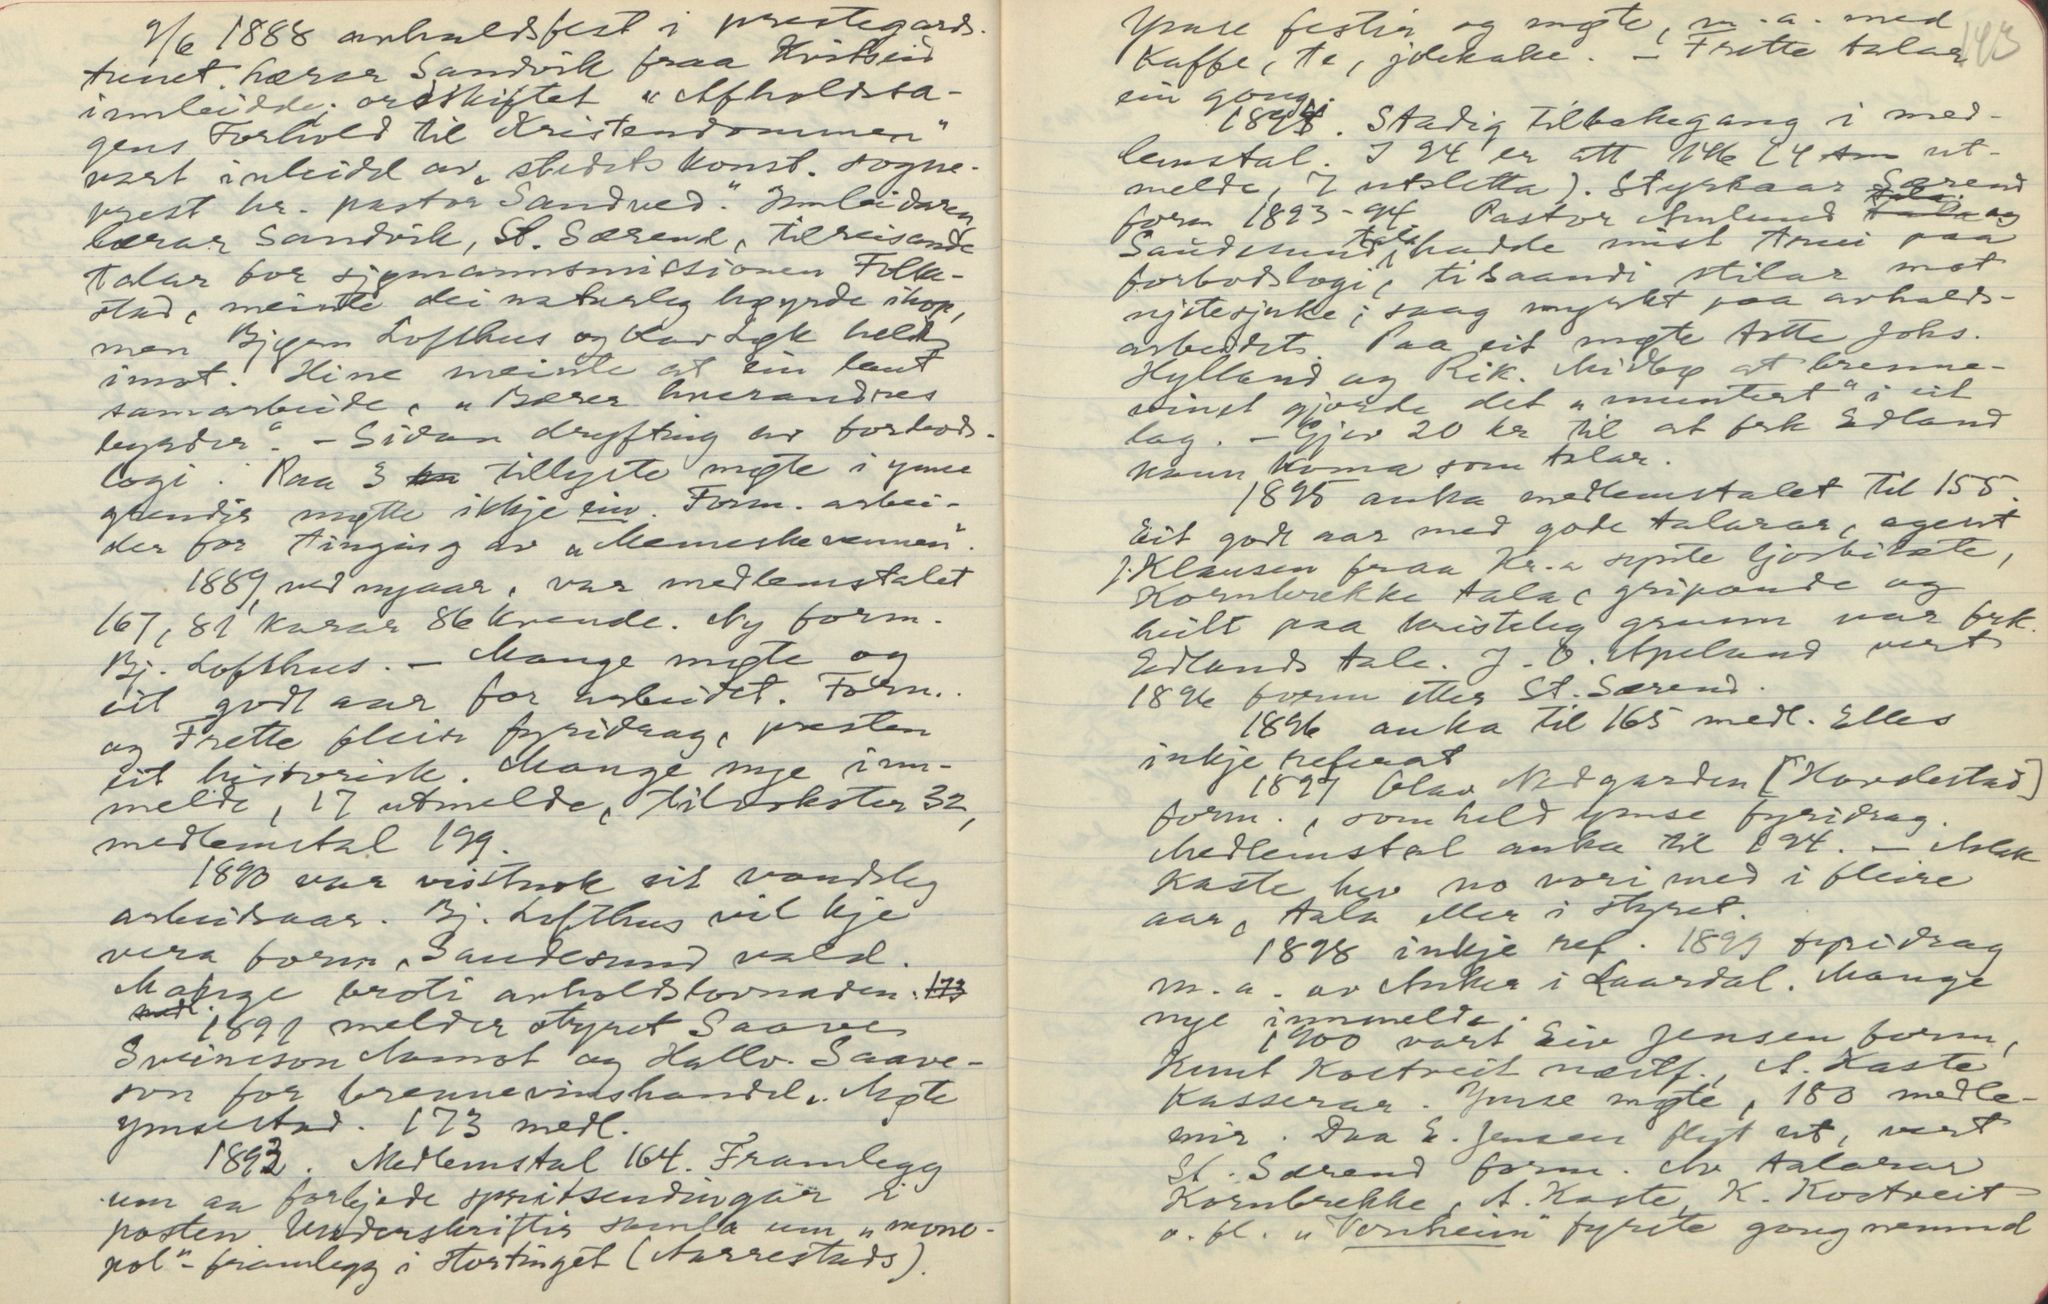 9/6 1888 avhaldsfest i prestegards-
tunet. Lærar Sandvik fraa Kvitseid
innleidde; ordskiftet „Afholdssa-
gens Forhold til Kristendommen"
vart inleidd av „stedets konst. sogne-
prest hr. pastor Sandved." Innleidaren,
lærar Sandvik, St. Særend, tilreisande
talar for sjømannsmissionen Folke-
stad, meinte dei naturleg høyrde ihop,
men Bjørn Lofthus og Hav Løk held
imot. Hine meinte at ein laut
samarbeide, „Bærer hverandres
byrder". – Sidan drøfting av forbods-
logi. Paa 3 tillyste møte i ymse
grendir møtte ikkje ein. Form. arbei-
der for tinging av „Menneskevennen".
1889, ved nyaar, var medlemstalet
167, 81 karar 86 kvende. Ny form.
Bj. Lofthus. – Mange møte og
eit godt aar for arbeidet. Form.
og Frette fleire fyridrag, presten
eit historisk. Mange nye inn-
melde, 17 utmelde, tilvokster 32,
medlemstal 199.
1890 var visstnok eit vandsleg
arbeidsaar. Bj. Lofthus vil kje
vera form, Saudesund vald.
Mange broti avholdslovnaden. 173
medl.
1891 melder styret Saave
Sveinsson Aamot og Hallv. Saave-
son for brennevinshandel. Møte
ymsestad. 173 medl.
1892. Medlemstal 164. Framlegg
um aa forbjode spritsendingar i
posten. Underskriftir samla um „mono-
pol"-framlegg i Stortinget (Aarrestads).
Ymse festir og møte, m.a. med
kaffe, te, julekake. – Frette talar
ein gong.
143
1894. Stadig tilbakegang i med-
lemstal. I 94 er att 146 (4 ut-
melde, 7 utsletta). Styrkaar Særend
form 1893-94. Pastor Amlund og
Saudesund tala, hadde mist trui paa
forbodslogi, tilraandi stilar mot
nytesjuke; saag myrkt paa avholds-
arbeidet. Paa eit møte tette Johs.
Hylland og Rik. Midbø at brenne-
vinet gjorde det „muntert" i eit
lag. – Gjev 20 kr til at frk Edland
kann koma som talar.
1895 auka medlemstalet til 155.
Eit godt aar med gode talarar, agent
J. Klausen fraa Kr.a synte ljosbilæte,
Kornbrekke tala, gripande og
heilt paa kristeleg grunn var frk.
Edlands tale. J. O. Apeland vert
1896 form etter St. Særend.
1896 auka til 165 medl. Elles
inkje referat
1897 Olav Nedgarden [Hovdestad]
form., som held ymse fyridrag.
Medlemstal auka til 194. – Aslak
Kaste hev no vori med i fleire
aar, tala eller i styret.
1898 inkje ref. 1899 fyridrag
m.a. av Anker i Laardal. Mange
nye innmelde.
1900 vart Eiv Jensen form,
Knut Kostveit næstf., A. Kaste
kasserar. Ymse møte, 180 medle-
mir. Daa E. Jensen flyt ut, vert
St. Særend form. Av talarar
Kornbrekke, A. Kaste, K. Kostveit
o. fl. „Vonheim" fyrste gong nemnd